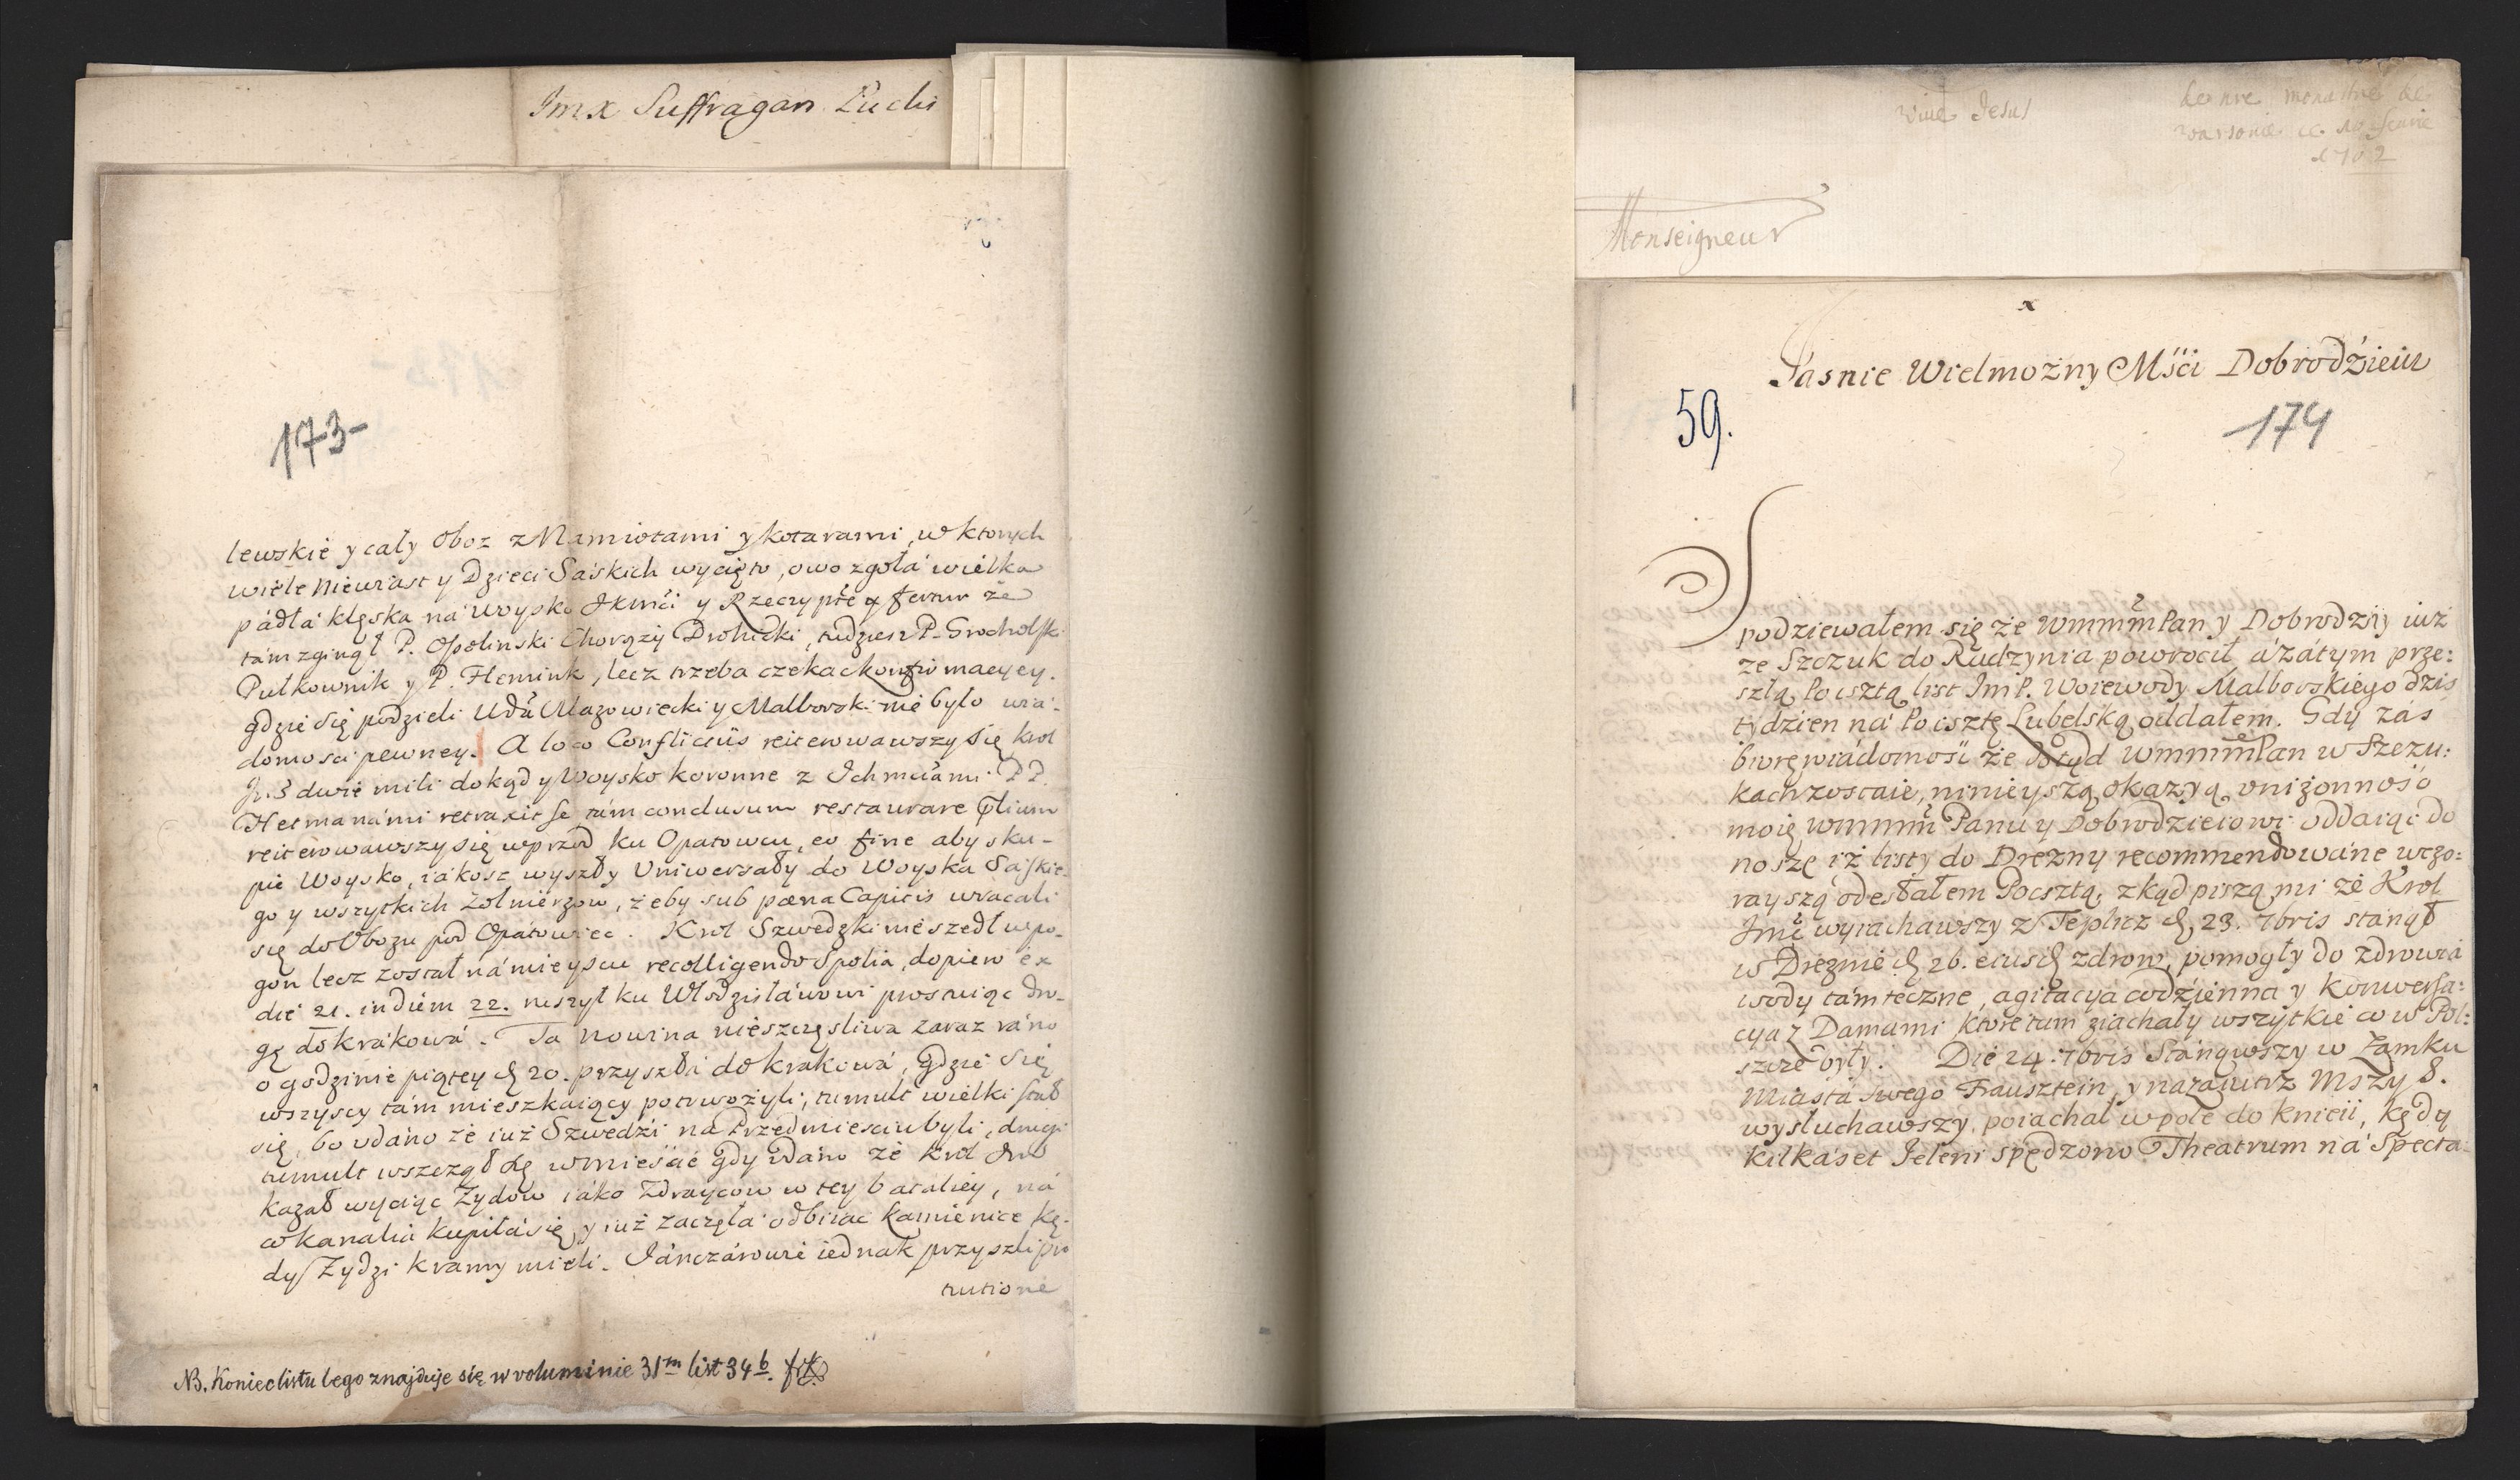 Jmx Suffragan Łucki
173-
lewskie y cały Oboz z Namiotami y kotarami, w ktorych
wiele Niewiast y Dzieci Saskich wycięto, owo zgoła wielka
padła klęska na Woysko JKMći y Rzeczypłtę fertur że
tám zginął P. Opalinski Chorązy, tudziesz P. Grocholsk
Pułkownik y P. Flemink, lecz trzeba czekac konfirmacyey.
gdzie się podzieli Wda Mazowiecki y Malborski nie było wia-
domosci pewney. A loco Conflictûs reiterowawszy się krol
Jm dwie mili dokąd y Woysko koronne z Jchmciami PP.
Hetmanámi retraxit se, tám conclusum restaurare
reiterowawszy się wprzod ku Opatowcu, eo fine aby sku-
pić Woysko, iákosz wyszły Uniwersały do Woyska Saskie-
go y wszytkich żołnierzow, żeby sub pæna Capitis wracali
się do Obozu pod Opátowiec. Krol Szwedzki nie szedł w po-
gon lecz został ná mieyscu recolligendo Spolia, dopiero ex
die 21. in diem 22. ruszył ku Włodzisłáwowi prostuiąc dro-
gę do krákowá. Ta nowina nieszczęsliwa zaraz ráno
o godzinie piątey d. 20. przyszłá do krakowá, gdzie się
wszyscy tám mieszkaiący potrwożyli, tumult wielki stał
się, bo udáno że iuż Szwedzi ná Przedmiesciu byli, drugi
tumult wszczął się w miescie gdy udáno że krol Jmć
kazał wyciąc Żydow iáko Zdraycow w tey bataliey, ná
co kanalia kupiłá się, y iuż zaczęłá odbiiac kamienice kę-
dy Żydzi kramy mieli. Jánczárowie iednak przyszli pro
tutione
NB. Koniec listu tego znajduje się w voluminie 31m list 34b.
Vive Jesus
de nre monastre de
varsovie ce 10
1702
Monseigneur
x
Jasnie Wielmozny Mśći Dobrodzieiu
59.
174
Spodziewałem się że Wmmm Pan y Dobrodziy iuż
ze Szczuk do Radzynia powrocił, á zátym prze:
szłą Pocztą list JmP. Woiewody Malborskiego dzis
tydzien ná Pocsztę Lubelską oddałem. Gdy zás
biorę wiádomość że dotąd Wmmm Pan w Szczu:
kach zostaie, ninieyszą okazyą, vniżonność
moię Wmmm Panu y Dobrodzieiowi oddaiąc do
noszę iż listy do Drezny recommendowáne wczo:
rayszą odesłałem Pocsztą, zkąd piszą mi że Krol
Jmć wyiachawszy z Teplicz d. 23. 7bris stanął
w Dreznie d. 26. eiusd zdrow, pomogły do zdrowia
wody támteczne, agitacya codzienna y konwersa:
cya z Damami ktore tam ziachały wszytkie co w Pol:
szcze były. Die 24. 7bris Stánąwszy w Zamku
Miásta swego Frausztein, y nazaiutrz Mszy S.
wysłuchawszy poiachał w pole do knieii, kędy
kilkáset Jeleni spędzono Theatrum ná Specta-